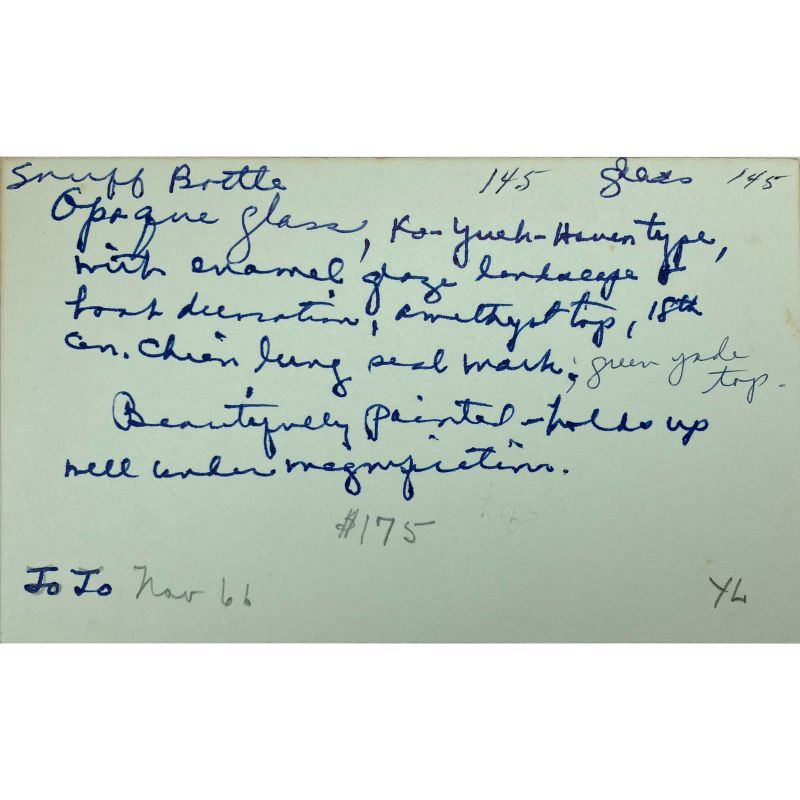 Snuff Bottle 145 glass 145
Opaque glass, Ko-Yueh-Hsuen type,
with enamel glaze landscape &
boat decoration, amethyst top, 18th
cen. Chien lung seal mark; green jade
top.
Beautifully painted - holds up
well under magnification.
$175
Jo Jo Nov 66 YL